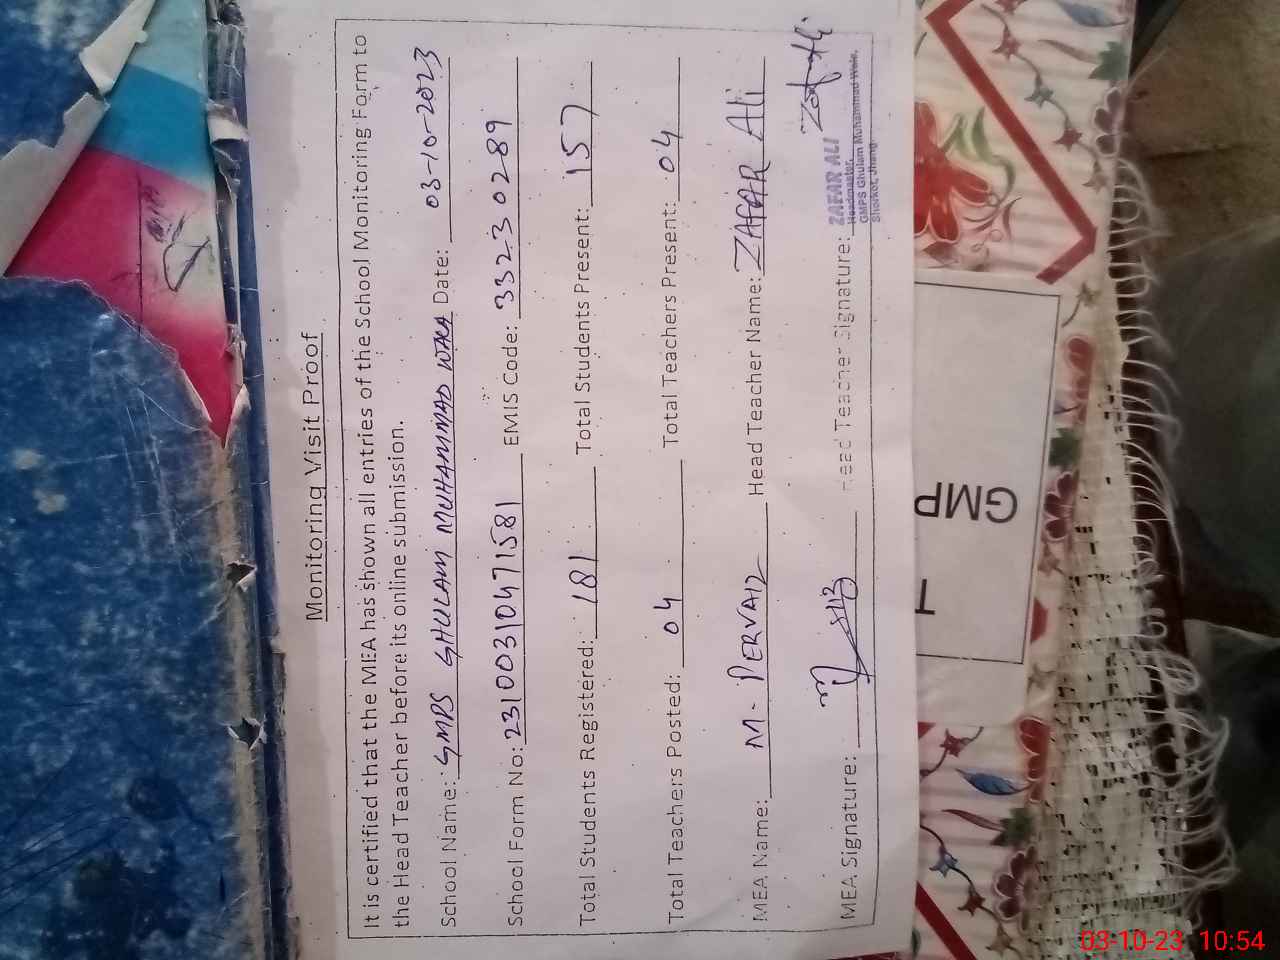 Monitoring Visit Proof
It is certified that the MEA has shown all entries of the School Monitoring Form to
the Head Teacher before its online submission.
School Name: GMPS GHULAM MUHAMMAD WALA Date: 03-10-2023
School Form No: 23100310471581 EMIS Code: 3323 0289
Total Students Registered: 181 Total Students Present: 157
Total Teachers Posted: 04 Total Teachers Present: 04
MEA Name: M. PERVAIZ Head Teacher Name: ZAFAR Ali
MEA Signature: Head Teacher Signature:
ZAFAR ALI
Headmaster,
GMPS Ghulam Muhammad Wala,
Shorkot, Jhang
GMP
T
03-10-23 10:54